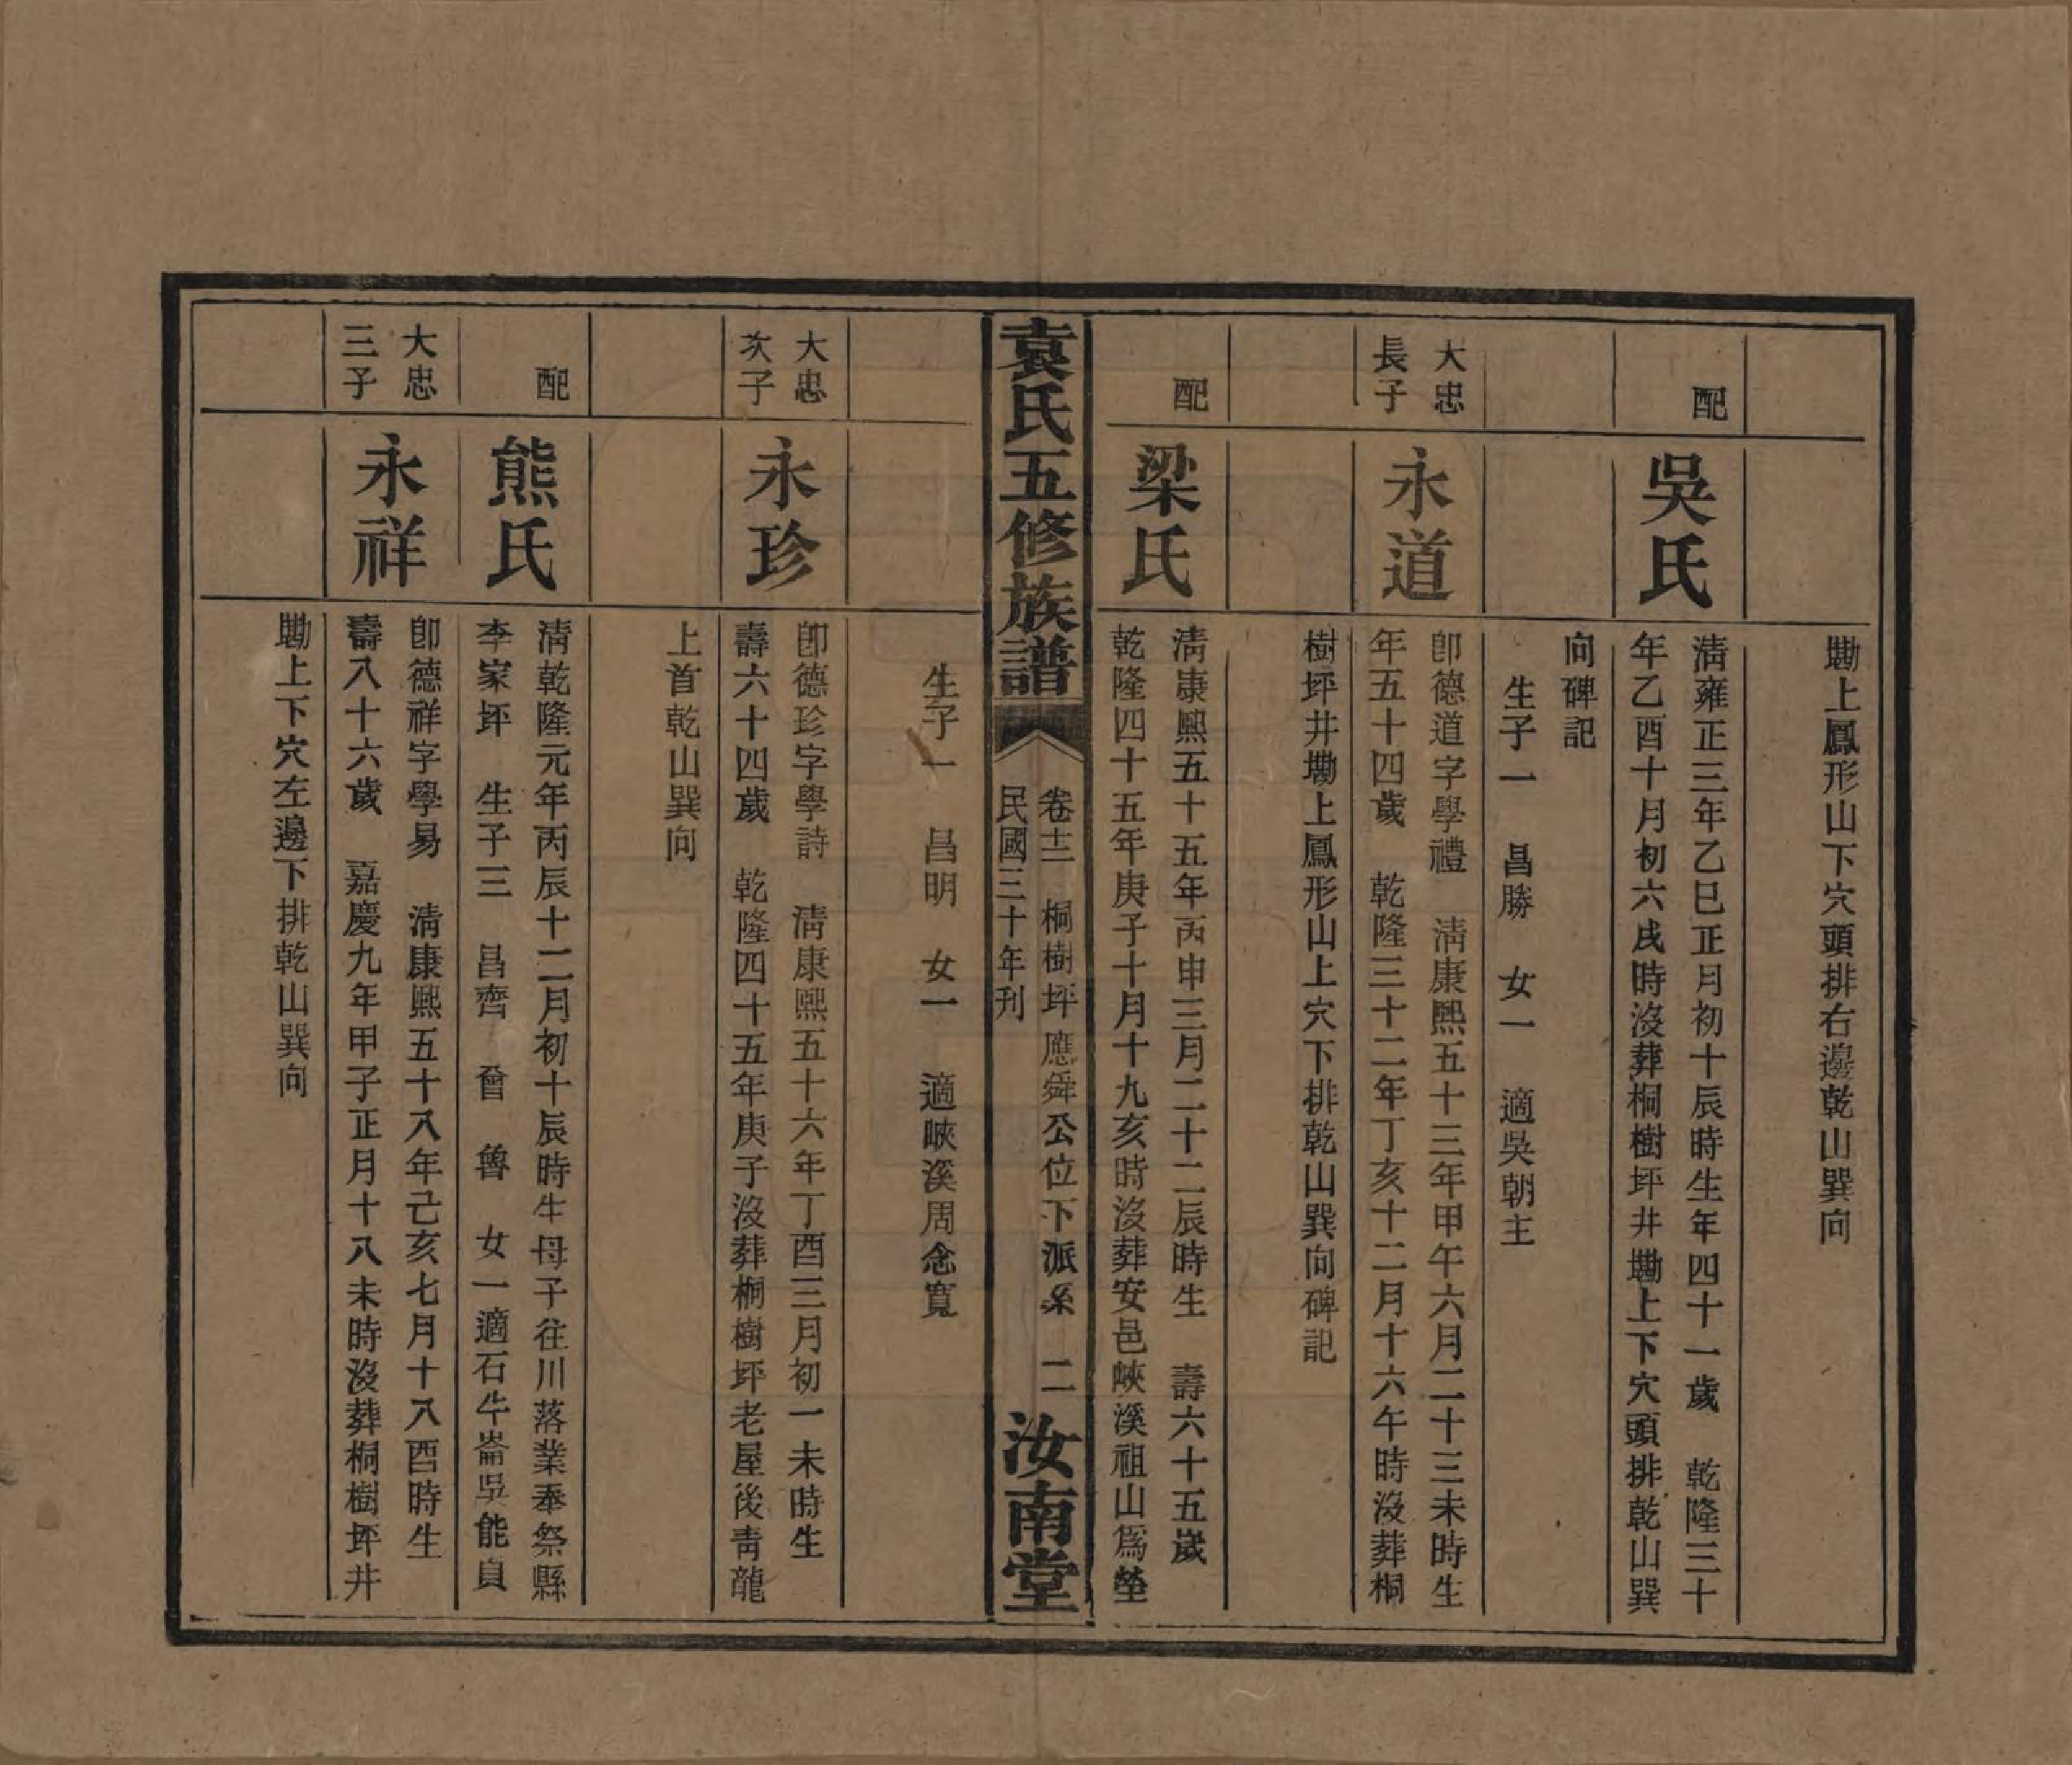 墈上鳳形山下穴頭排右邊乾山巽向
配
吳氏
淸雍正三年乙巳正月初十辰時生年四十一歲　乾隆三十
年乙酉十月初六戌時沒葬桐樹坪井墈上下穴頭排乾山巽
向碑記
生子一　昌勝　女一　適吳朝主
大忠
長子
永道
卽德道字學禮　淸康熙五十三年甲午六月二十三未時生
年五十四歲　乾隆三十二年丁亥十二月十六午時沒葬桐
樹坪井墈上鳳形山上穴下排乾山巽向碑記
配
梁氏
淸康熙五十五年丙申三月二十二辰時生　壽六十五歲
乾隆四十五年庚子十月十九亥時沒葬安邑峽溪祖山爲塋
袁氏五修族譜
卷十二　桐樹坪應舜公位下派系　二
民國三十年刋
汝南堂
生子一　昌明　女一　適峽溪周念寬
大忠
次子
永珍
卽德珍字學詩　淸康熙五十六年丁酉三月初一未時生
壽六十四歲　乾隆四十五年庚子沒葬桐樹坪老屋後靑龍
上首乾山巽向
配
熊氏
淸乾隆元年丙辰十二月初十辰時生母子往川落業奉祭縣
李家坪　生子三　昌齊　曾　魯　女一適石牛崙吳能貞
大忠
三子
永祥
卽德祥字學易　淸康熙五十八年己亥七月十八酉時生
壽八十六歲　嘉慶九年甲子正月十八未時沒葬桐樹坪井
墈上下穴左邊下排乾山巽向